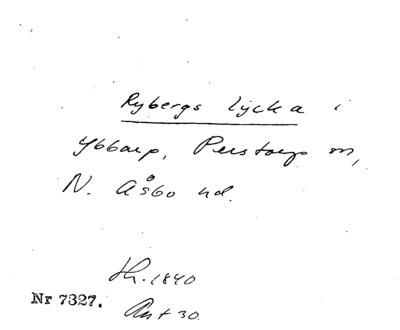 Rybergs lycka i
Ybbarp, Perstorp sn,
N. Åsbo hd.
Th. 1840
Nr 7327.
Ant 30.